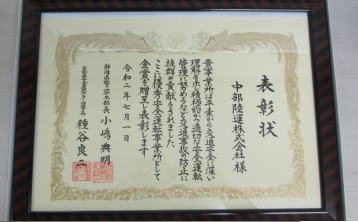 表彰状
中部陸運株式会社 様
貴事業所は平素から交通安全に深い
理解を示し積極的かつ適切な安全運転
管理に努めるなど交通事故の防止に
抜群の貢献をされました
ここに優秀安全運転事業所として
金賞を贈呈し表彰します
令和二年七月一日
静岡県警察本部長 小嶋典明
自動車安全運転センター理事長 種谷良二